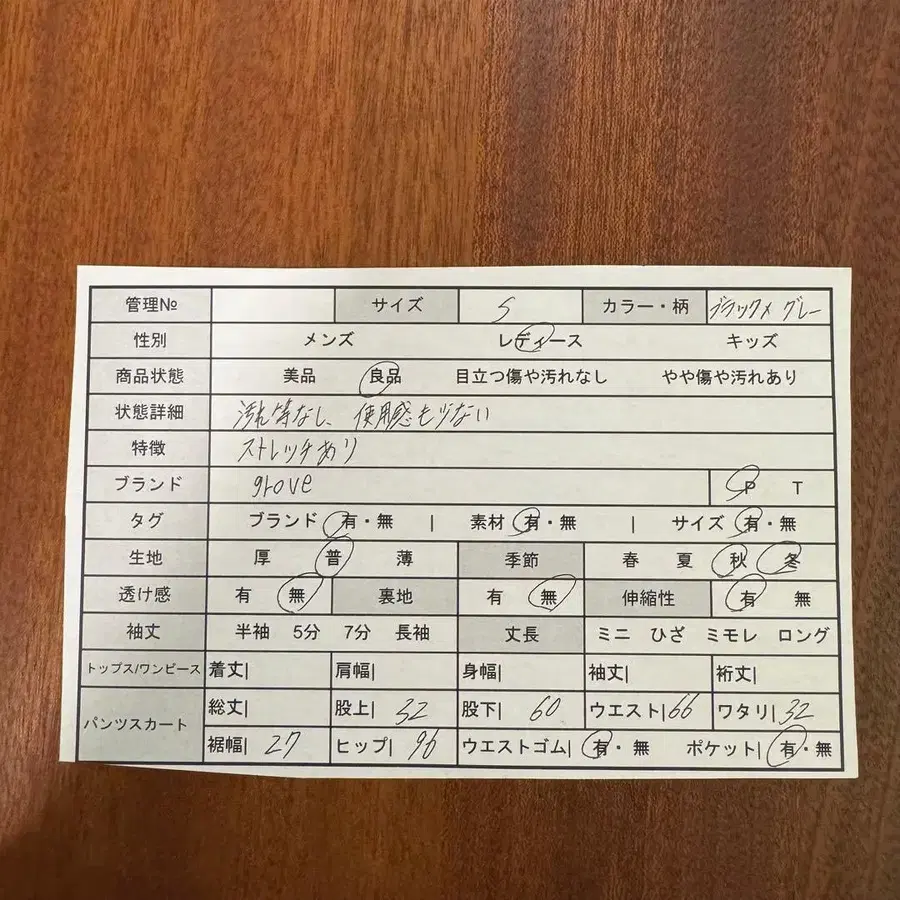 管理№ サイズ S カラー・柄 ブラック× グレー
性別 メンズ レディース キッズ
商品状態 美品 良品 目立つ傷や汚れなし やや傷や汚れあり
状態詳細 汚れ等なし、使用感も少ない
特徴 ストレッチあり
ブランド grove P T
タグ ブランド 有・無 | 素材 有・無 | サイズ 有・無
生地 厚 普 薄 季節 春 夏 秋 冬
透け感 有 無 裏地 有 無 伸縮性 有 無
袖丈 半袖 5分 7分 長袖 丈長 ミニ ひざ ミモレ ロング
トップス/ワンピース 着丈| 肩幅| 身幅| 袖丈| 裄丈|
パンツスカート 総丈| 股上| 32 股下| 60 ウエスト| 66 ワタリ| 32
裾幅| 27 ヒップ| 96 ウエストゴム| 有・無 ポケット| 有・無